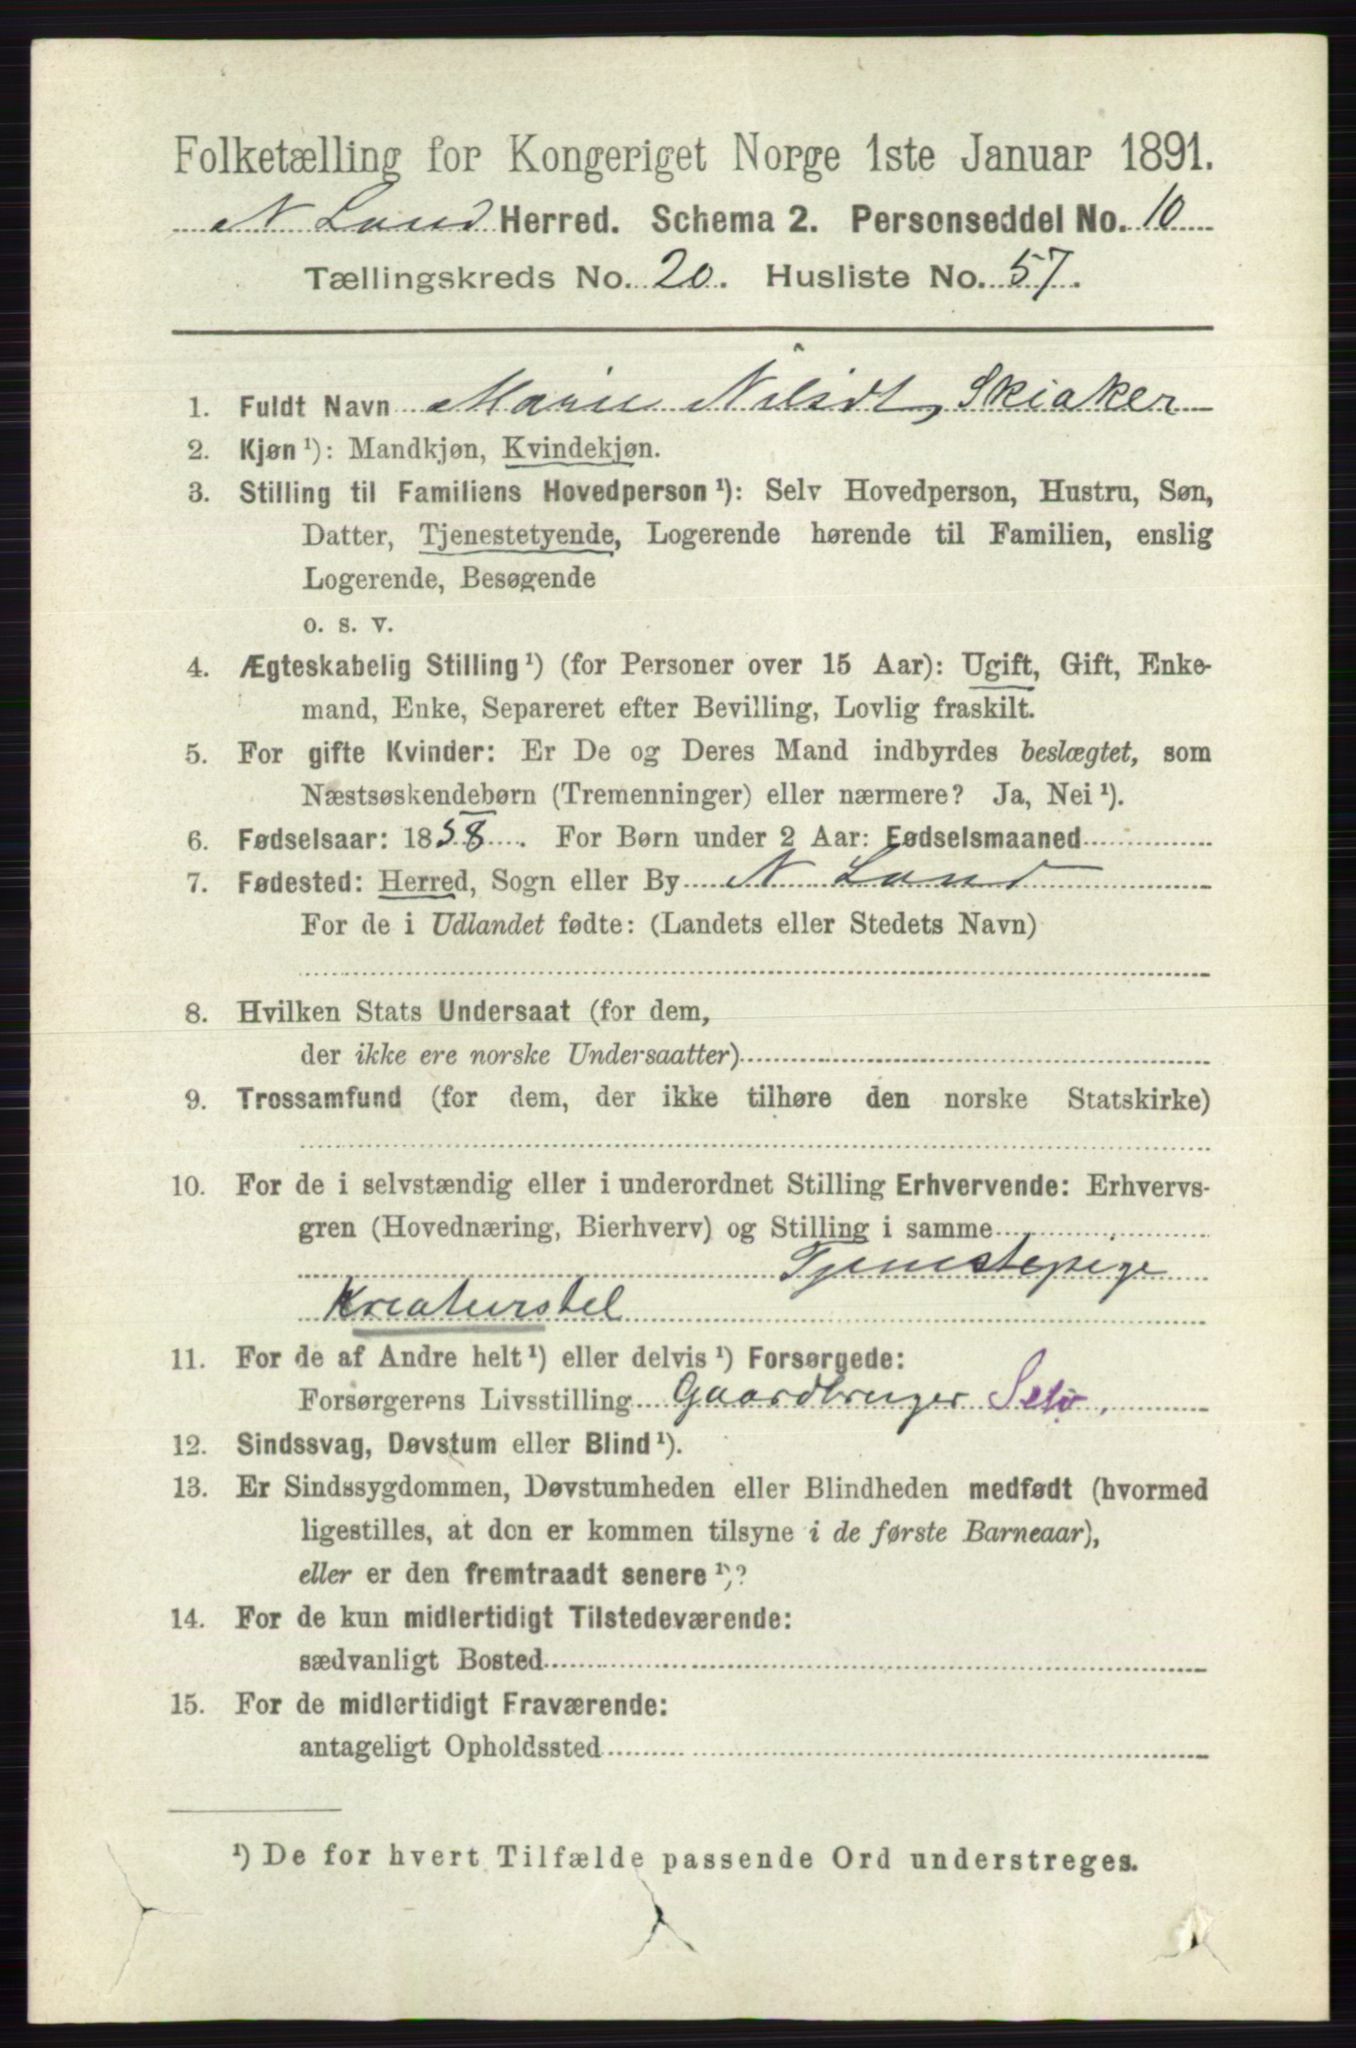 Folketælling for Kongeriget Norge 1ste Januar 1891.
N Land Herred. Schema 2. Personseddel No. 10
Tællingskreds No. 20. Husliste No. 57.
1. Fuldt Navn Marie Nilsdt, Skiaker
2. Kjøn¹): Mandkjøn, Kvindekjøn.
3. Stilling til Familiens Hovedperson¹): Selv Hovedperson, Hustru, Søn,
Datter, Tjenestetyende, Logerende hørende til Familien, enslig
Logerende, Besøgende
o. s. v.
4. Ægteskabelig Stilling¹) (for Personer over 15 Aar): Ugift, Gift, Enke-
mand, Enke, Separeret efter Bevilling, Lovlig fraskilt.
5. For gifte Kvinder: Er De og Deres Mand indbyrdes beslægtet, som
Næstsøskendebørn (Tremenninger) eller nærmere? Ja, Nei¹).
6. Fødselsaar: 1858. For Børn under 2 Aar: Fødselsmaaned
7. Fødested: Herred, Sogn eller By N Land
For de i Udlandet fødte: (Landets eller Stedets Navn)
8. Hvilken Stats Undersaat (for dem,
der ikke ere norske Undersaatter)
9. Trossamfund (for dem, der ikke tilhøre den norske Statskirke)
10. For de i selvstændig eller i underordnet Stilling Erhvervende: Erhvervs-
gren (Hovednæring, Bierhverv) og Stilling i samme
Tjenestepige
Kreaturstel
11. For de af Andre helt¹) eller delvis¹) Forsørgede:
Forsørgerens Livsstilling Gaardbruger Selv.
12. Sindssvag, Døvstum eller Blind¹).
13. Er Sindssygdommen, Døvstumheden eller Blindheden medfødt (hvormed
ligestilles, at den er kommen tilsyne i de første Barneaar),
eller er den fremtraadt senere¹)?
14. For de kun midlertidigt Tilstedeværende:
sædvanligt Bosted
15. For de midlertidigt Fraværende:
antageligt Opholdssted
¹) De for hvert Tilfælde passende Ord understreges.